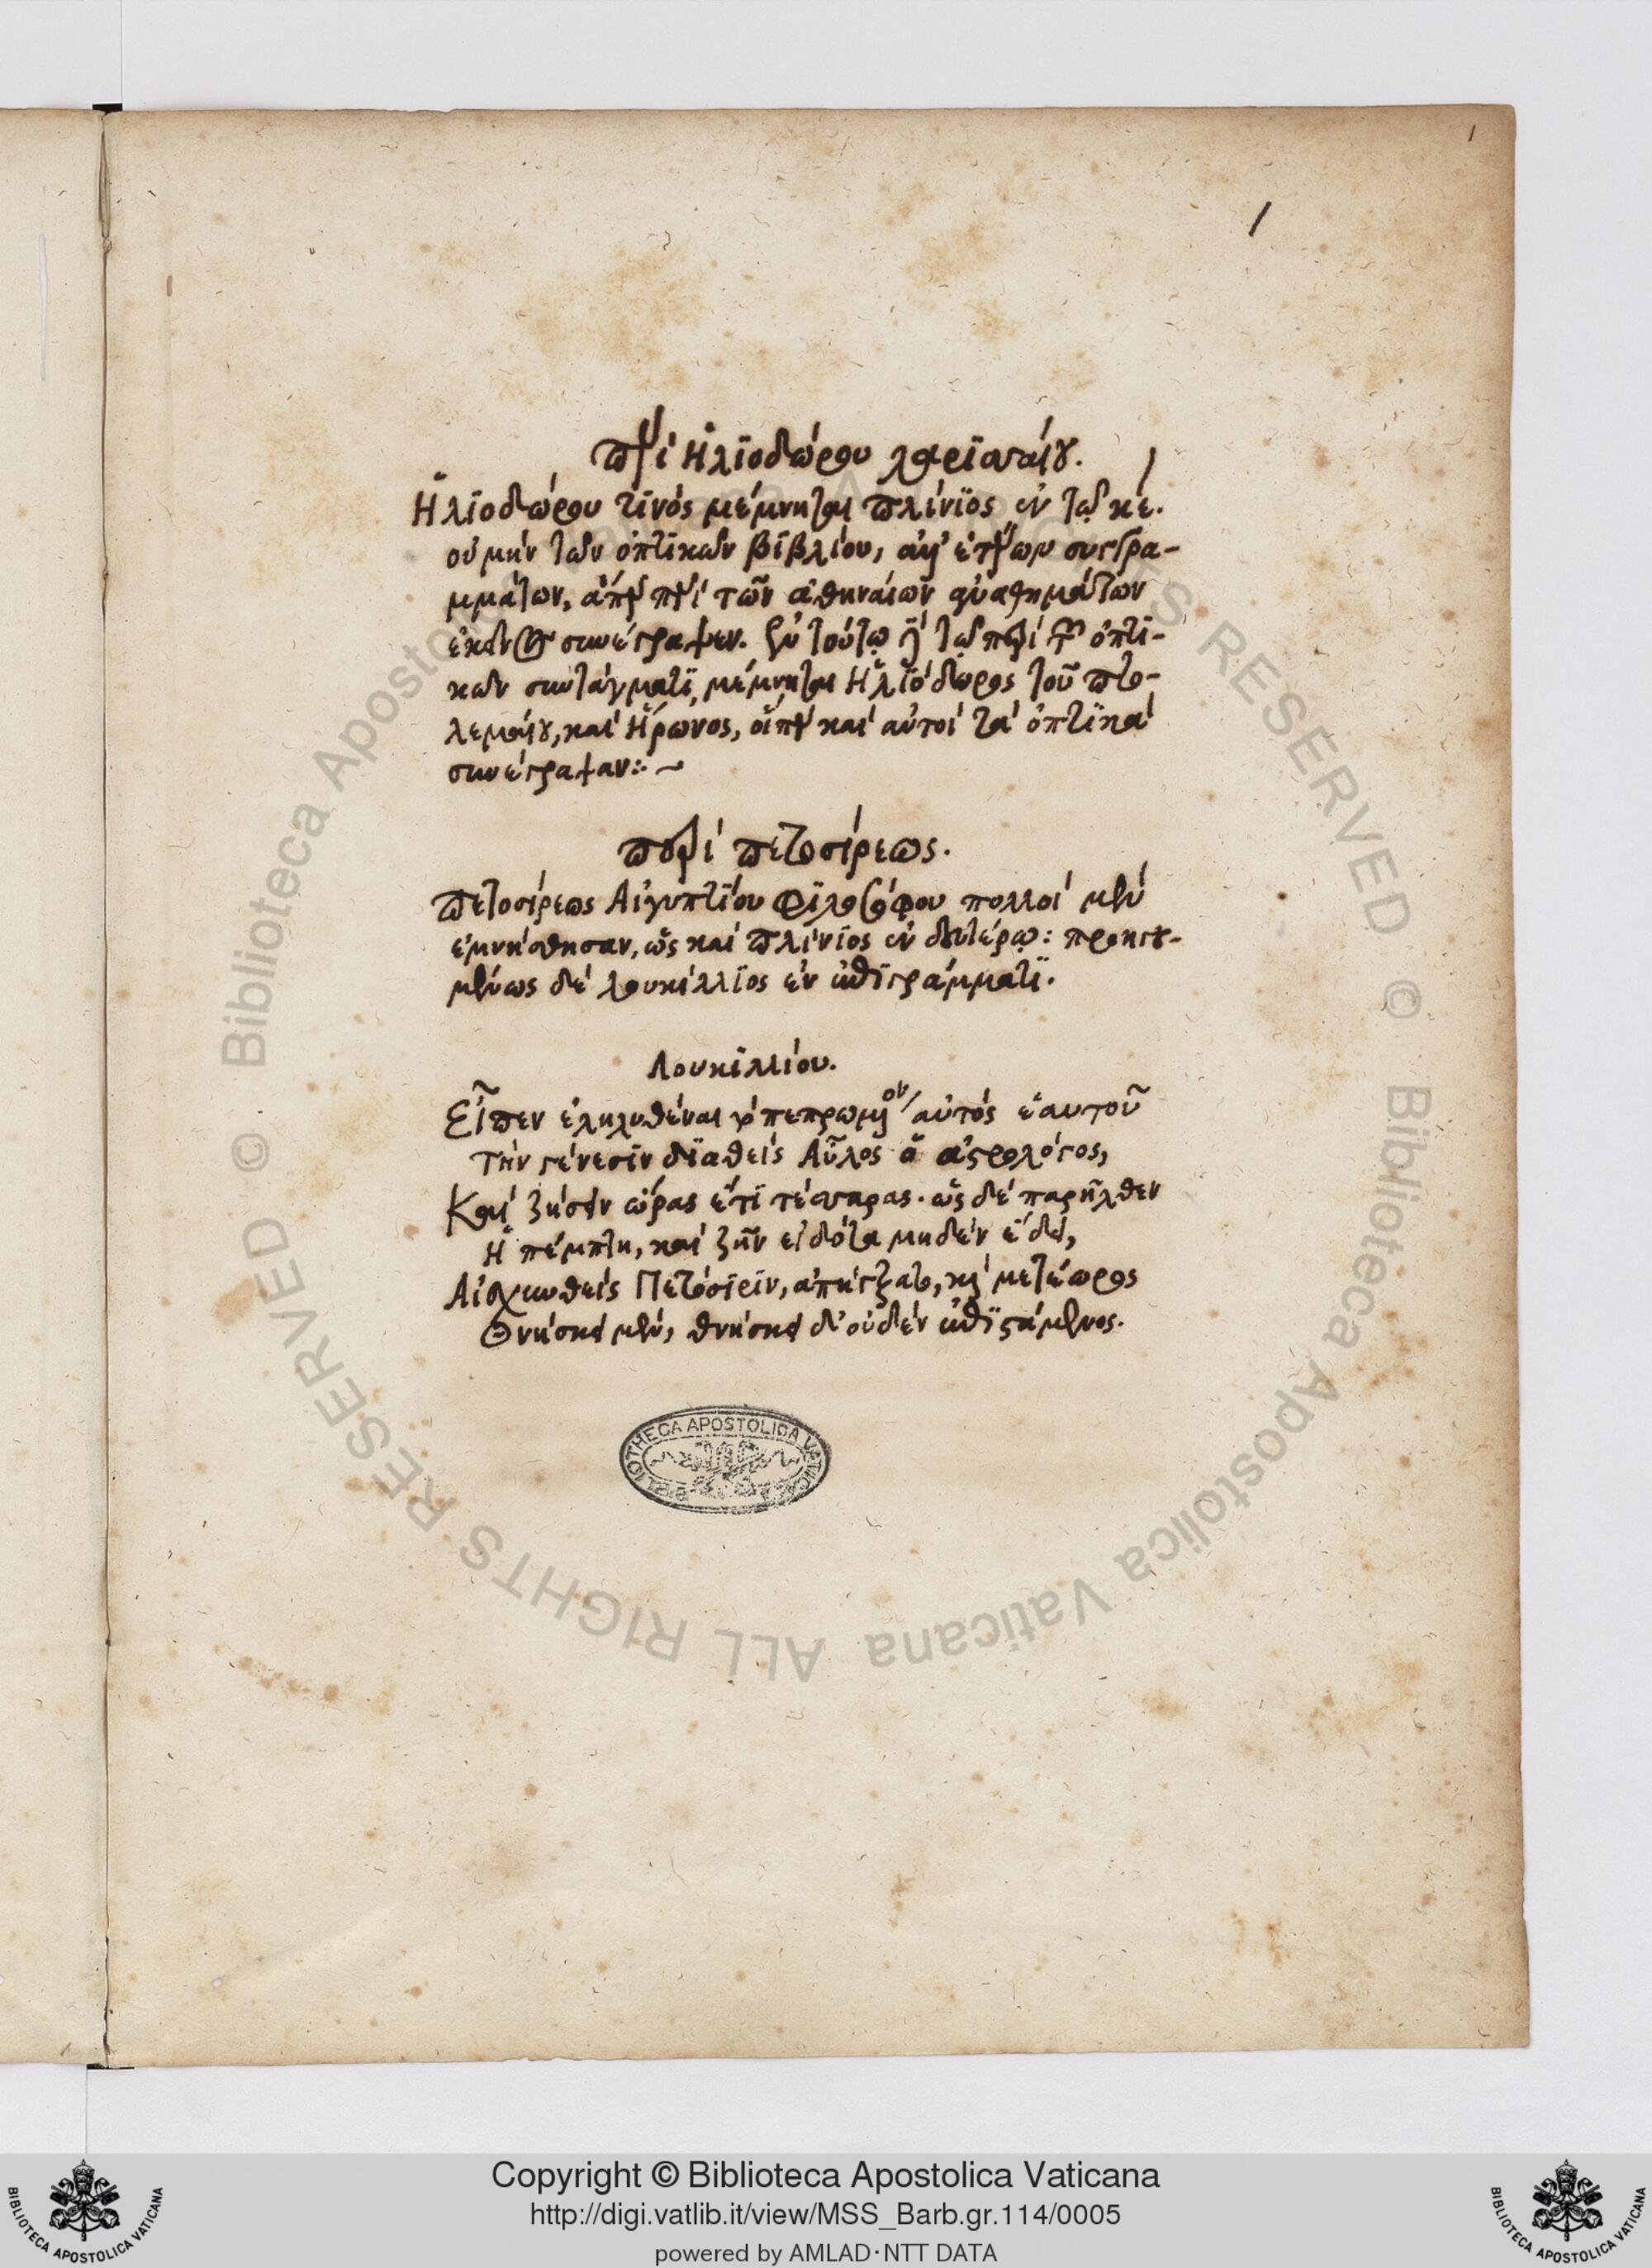 1
1
περὶ Ἡλιοδώρου λαρισσαίου.
Ἡλιοδώρου τινός μέμνηται πλίνιος ἐν τῷ κέ.
οὐ μὴν τῶν ὀπτικῶν βιβλίου, ἀλλ' ἑτέρων συγγρα-
μμάτων, ἅπερ περὶ τῶν ἀθηναίων ἀναθημάτων
ἐκεῖνος συνέγραψεν. ἐν τούτῳ δὲ τῷ περὶ τῶν ὀπτι-
κῶν συντάγματι, μέμνηται Ἡλιόδωρος τοῦ πτο-
λεμαίου, καὶ Ἥρωνος, οἵπερ καὶ αὐτοὶ τὰ ὀπτικὰ
συνέγραψαν:~
περὶ πετοσίρεως.
πετοσίρεως Αἰγυπτίου φιλοσόφου πολλοὶ μὲν
ἐμνήσθησαν, ὡς καὶ πλίνιος ἐν δευτέρῳ: προηγου-
μένως δὲ λουκίλλιος ἐν ἐπιγράμματι.
Λουκιλλίου.
Εἶπεν ἐληλυθέναι τὸ πεπρωμένον αὐτὸς ἑαυτοῦ
τὴν γένεσιν διαθεὶς Αὖλος ὁ ἀστρολόγος,
Καὶ ζήσειν ὥρας ἔτι τέσσαρας. ὡς δὲ παρῆλθεν
Ἡ πέμπτη, καὶ ζῆν εἰδότα μηδὲν ἔδει,
Αἰσχυνθεὶς Πετόσιριν, ἀπήγξατο, καὶ μετέωρος
Θνήσκει μὲν, θνήσκει δ' οὐδὲν ἐπιστάμενος.
BIBLIOTHECA APOSTOLICA VATICANA
© Biblioteca Apostolica Vaticana ALL RIGHTS RESERVED
© Biblioteca Apostolica Vaticana ALL RIGHTS RESERVED
Copyright © Biblioteca Apostolica Vaticana
http://digi.vatlib.it/view/MSS_Barb.gr.114/0005
powered by AMLAD·NTT DATA
BIBLIOTECA APOSTOLICA VATICANA
BIBLIOTECA APOSTOLICA VATICANA